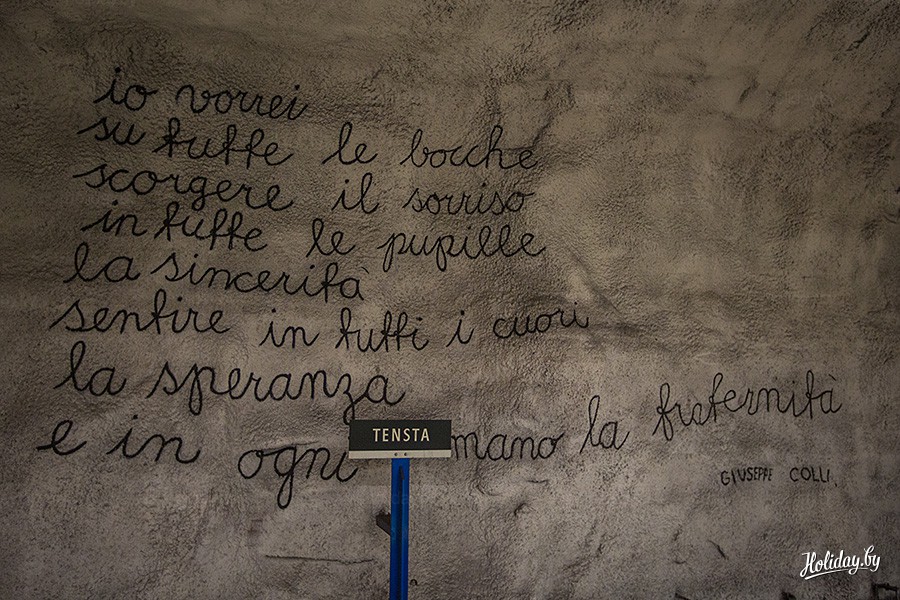 io vorrei
su tutte le bocche
scorgere il sorriso
in tutte le pupille
la sincerità
sentire in tutti i cuori
la speranza
e in ogni mano la fraternità
TENSTA
GIUSEPPE COLLI,
Holiday.by